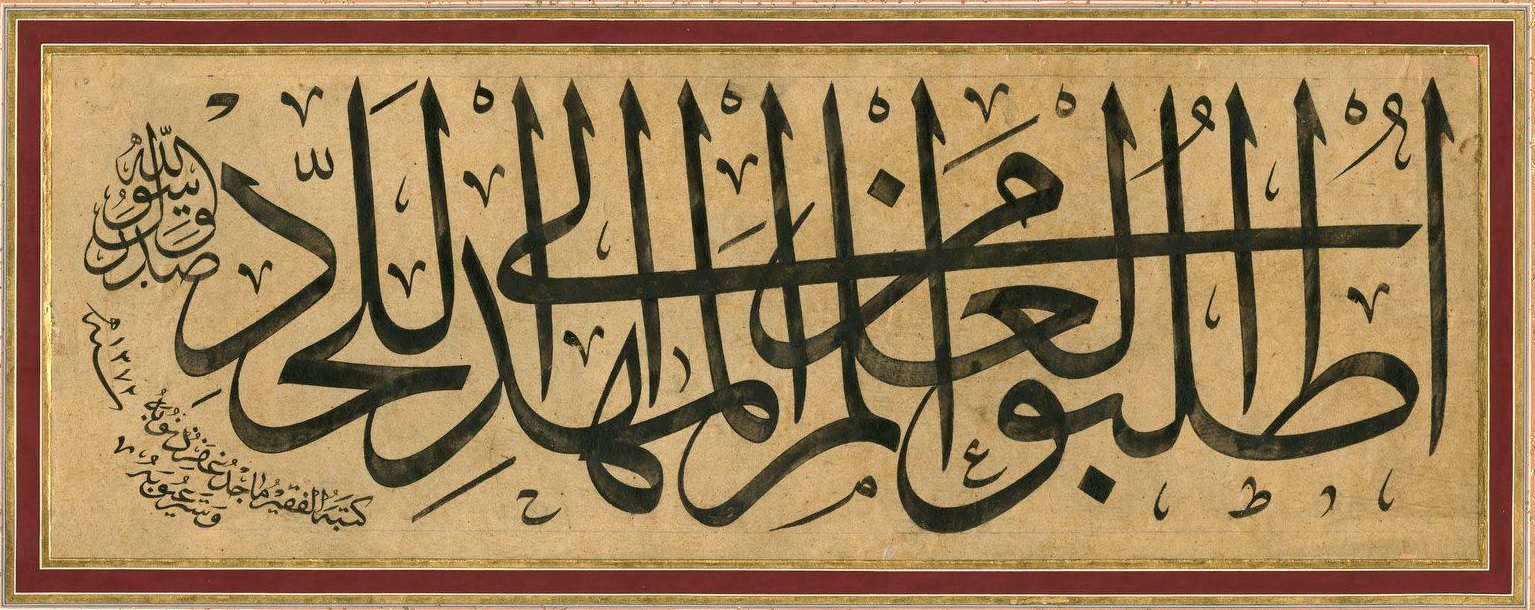 اطلبوا العلم من المهد الى اللحد
صدق رسول الله
سنه ١٣٧٢
كتبه الفقير ماجد غفر ذنوبه
وستر عيوبه